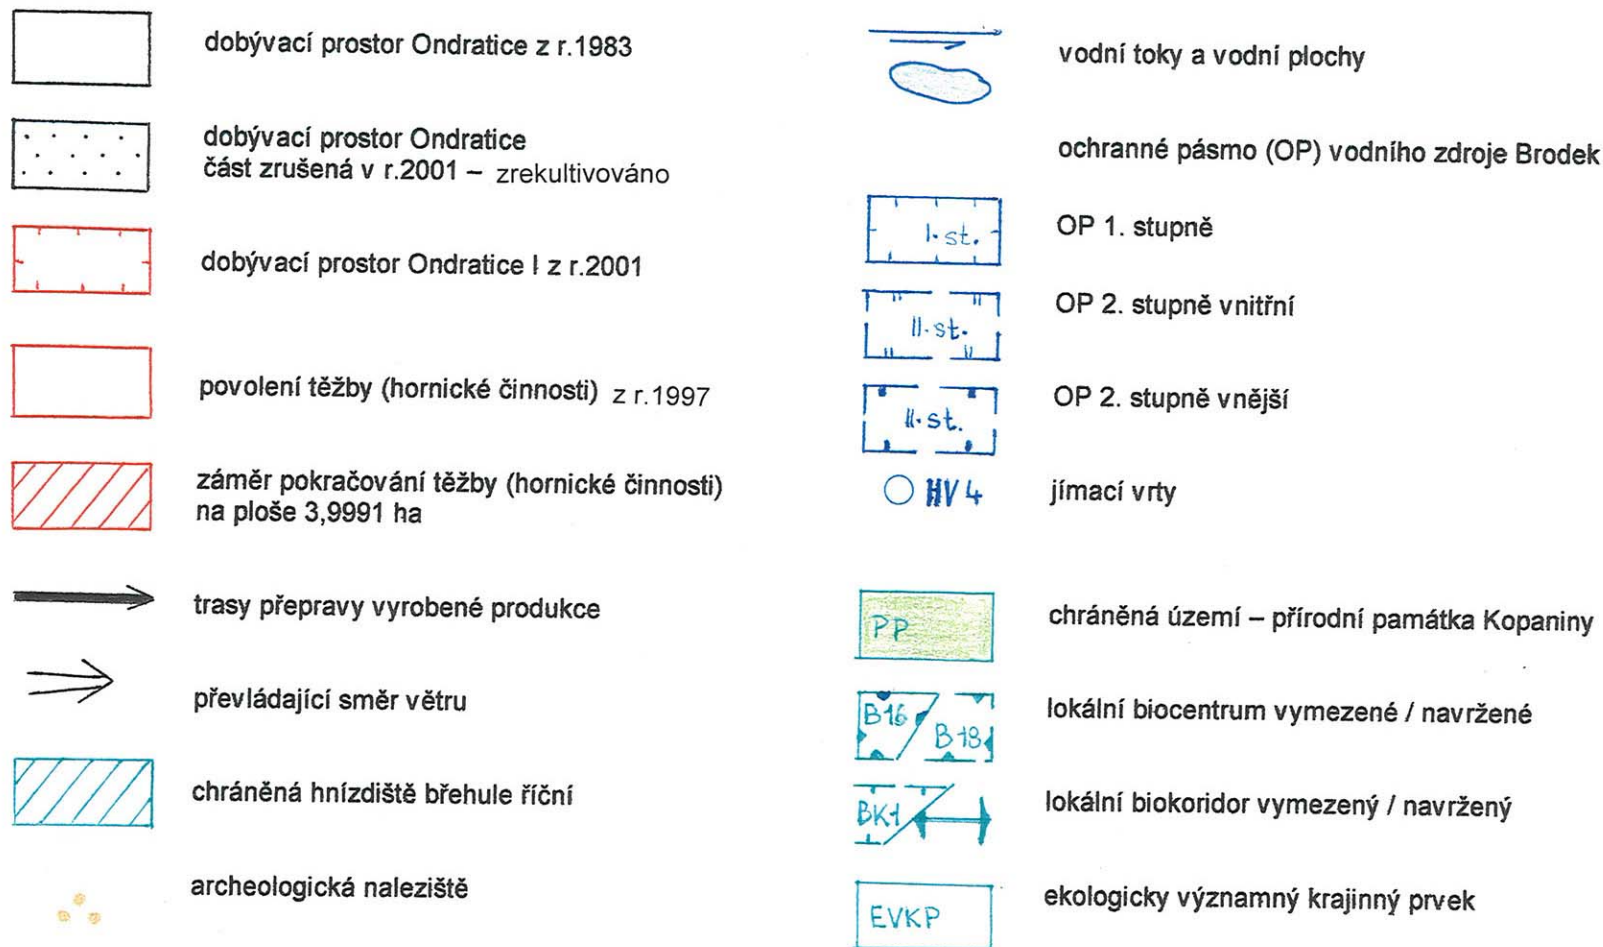 dobývací prostor Ondratice z r.1983
dobývací prostor Ondratice
část zrušená v r.2001 – zrekultivováno
dobývací prostor Ondratice I z r.2001
povolení těžby (hornické činnosti) z r.1997
záměr pokračování těžby (hornické činnosti)
na ploše 3,9991 ha
trasy přepravy vyrobené produkce
převládající směr větru
chráněná hnízdiště břehule říční
archeologická naleziště
vodní toky a vodní plochy
ochranné pásmo (OP) vodního zdroje Brodek
I. st.
OP 1. stupně
II. st.
OP 2. stupně vnitřní
II. st.
OP 2. stupně vnější
HV 4
jímací vrty
PP
chráněná území – přírodní památka Kopaniny
B16 B18
lokální biocentrum vymezené / navržené
BK1
lokální biokoridor vymezený / navržený
EVKP
ekologicky významný krajinný prvek